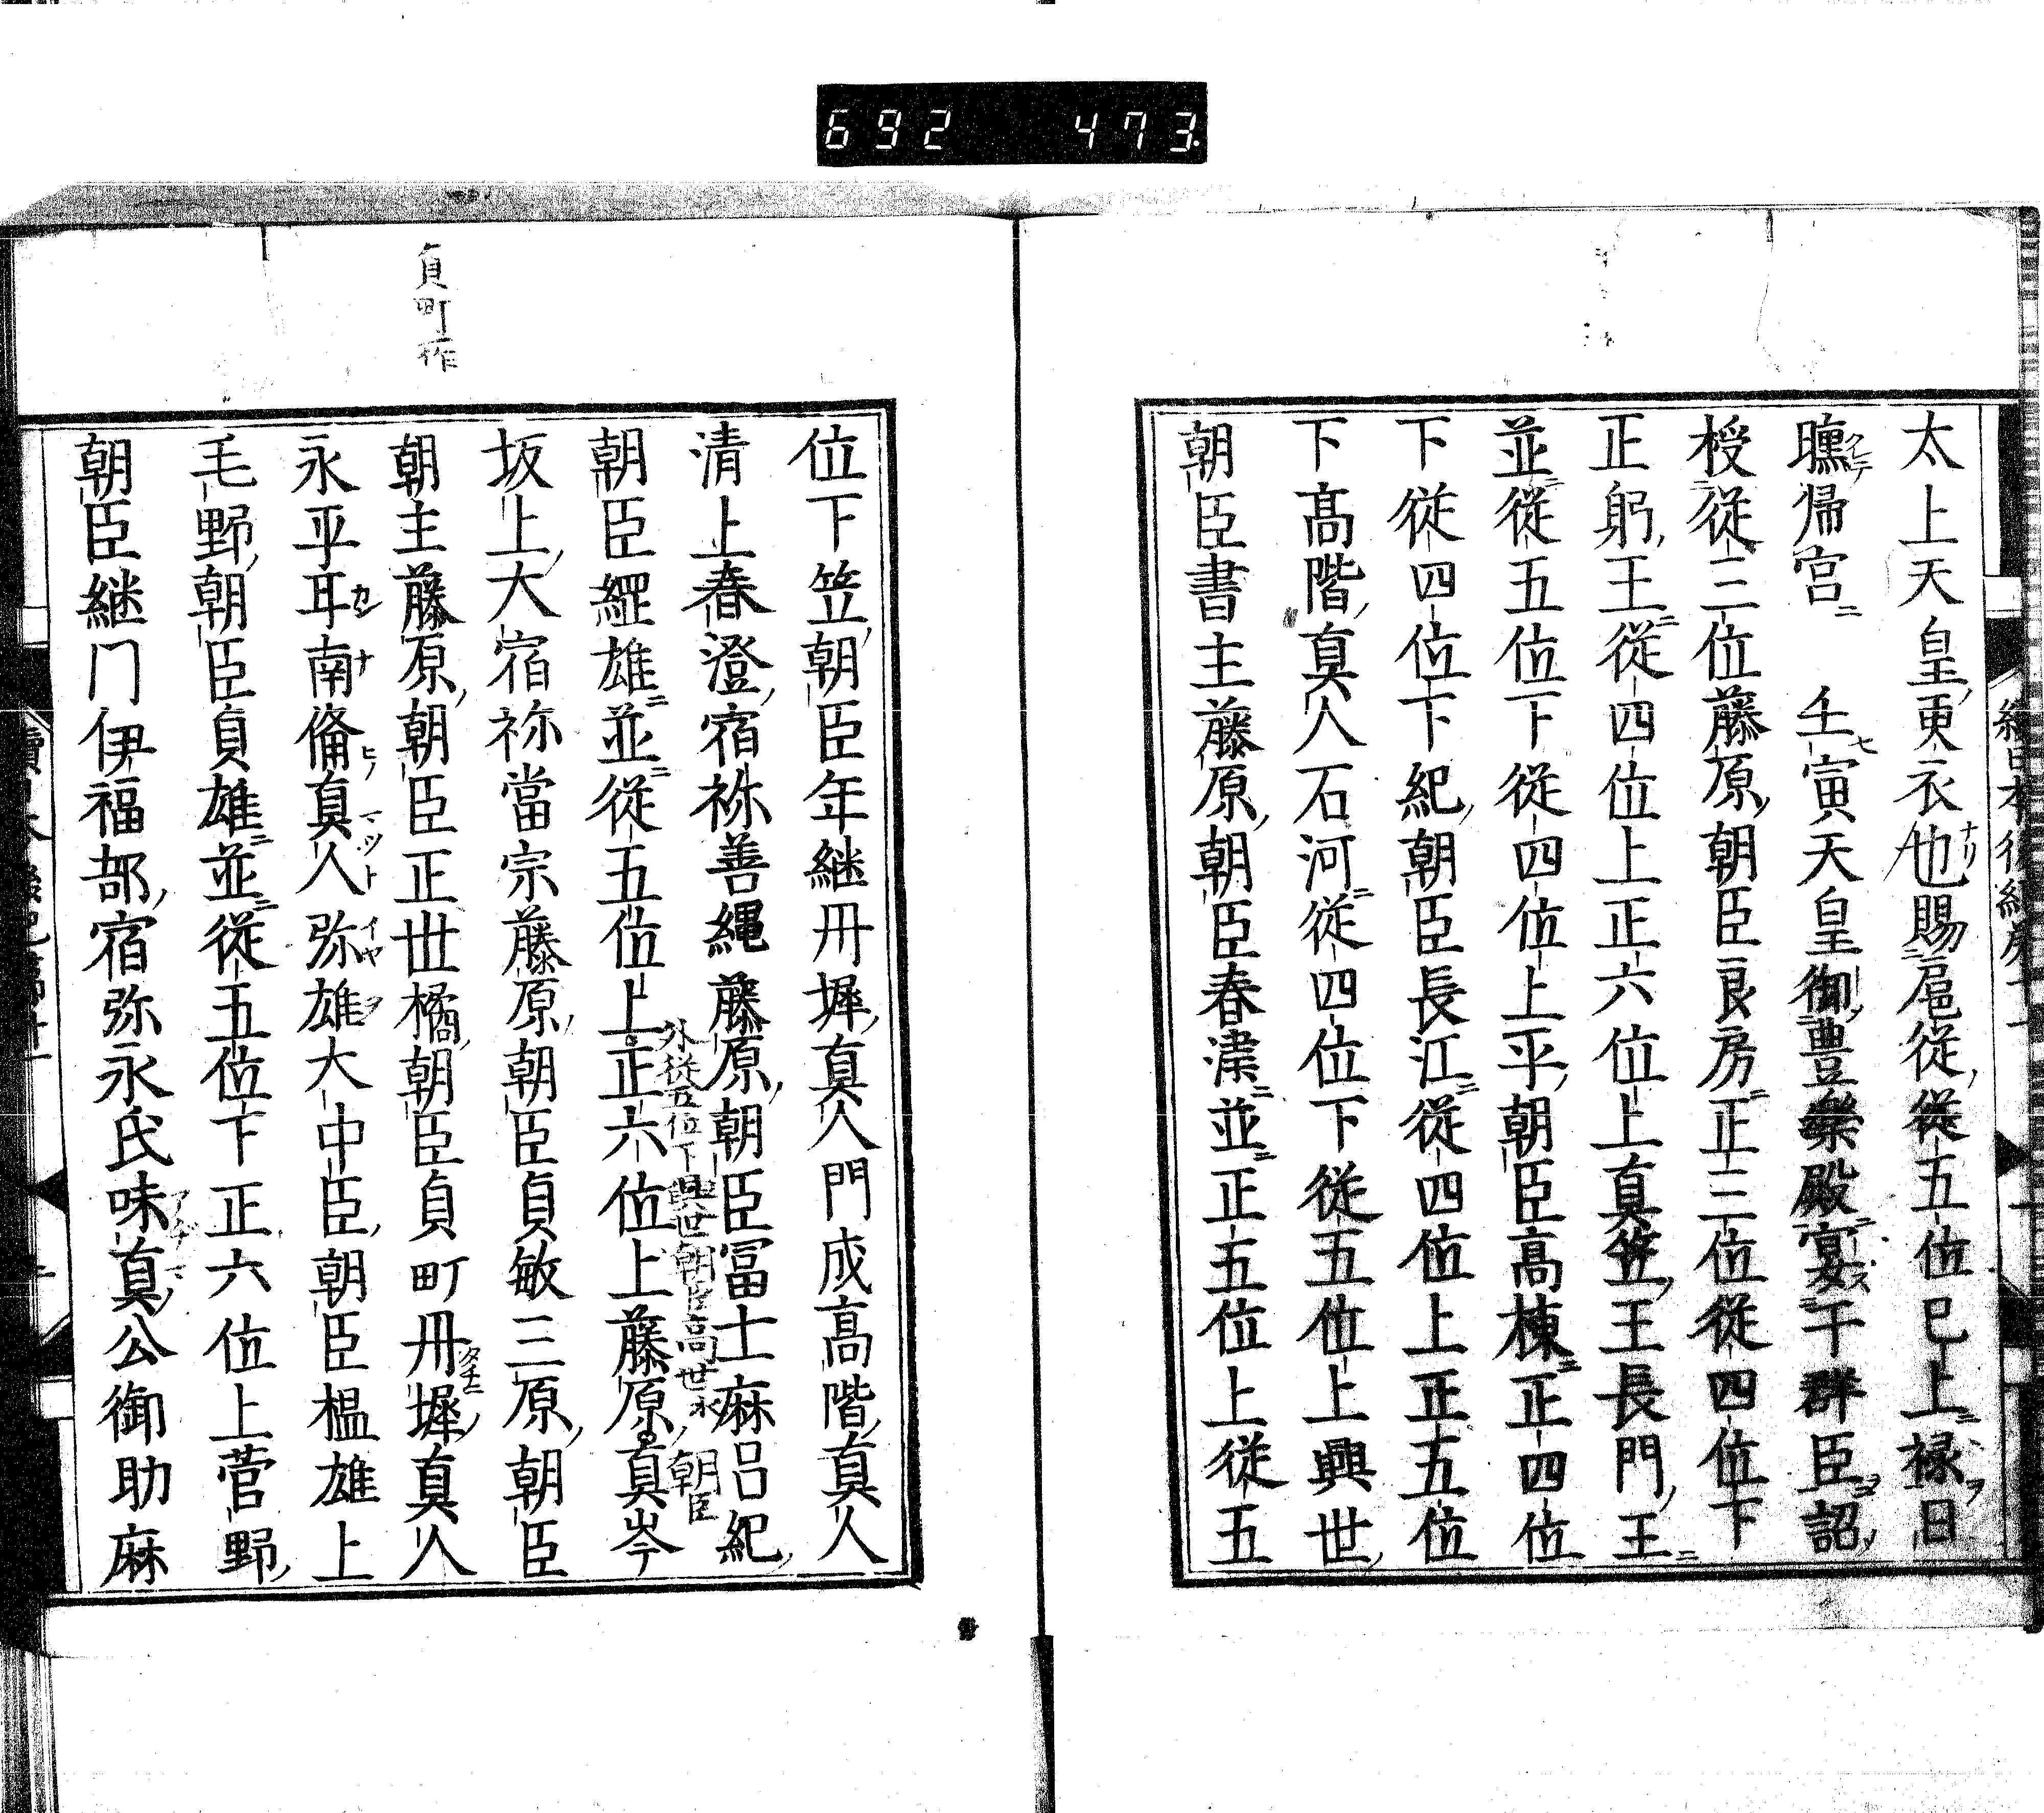 692 473
太上天皇更衣也賜扈從從五位已上祿日
曛帰宮 壬寅天皇御豊樂殿宴于群臣詔
授從三位藤原朝臣良房正三位從四位下
正躬王從四位上正六位上真笠王長門王
並從五位下從四位上平朝臣高棟正四位
下從四位下紀朝臣長江從四位上正五位
下髙階真人石河從四位下從五位上興世
朝臣書主藤原朝臣春津並正五位上從五
貞町作
位下笠朝臣年継丹墀真人門成高階真人
清上春澄宿祢善縄藤原朝臣冨士麻呂紀
外從五位下興世朝臣高世永 朝臣
朝臣綱雄並從五位上正六位上藤原真岑
坂上大宿祢當宗藤原朝臣貞敏三原朝臣
朝主藤原朝臣正世橘朝臣貞町丹墀真人
永平耳南備真人弥雄大中臣朝臣榲雄上
毛野朝臣貞雄並從五位下正六位上菅野
朝臣継门伊福部宿弥永氏味真公御助麻